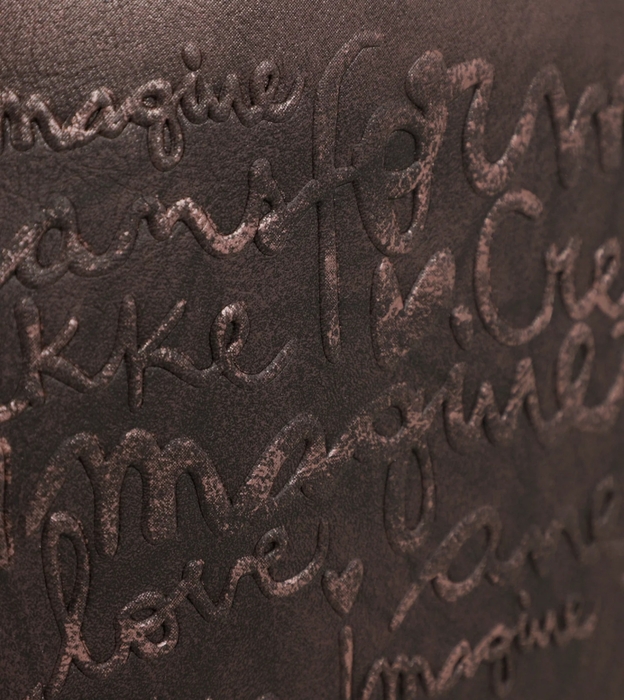 magine
ansform
kke M. Cre
imagine
love ame
Imagine